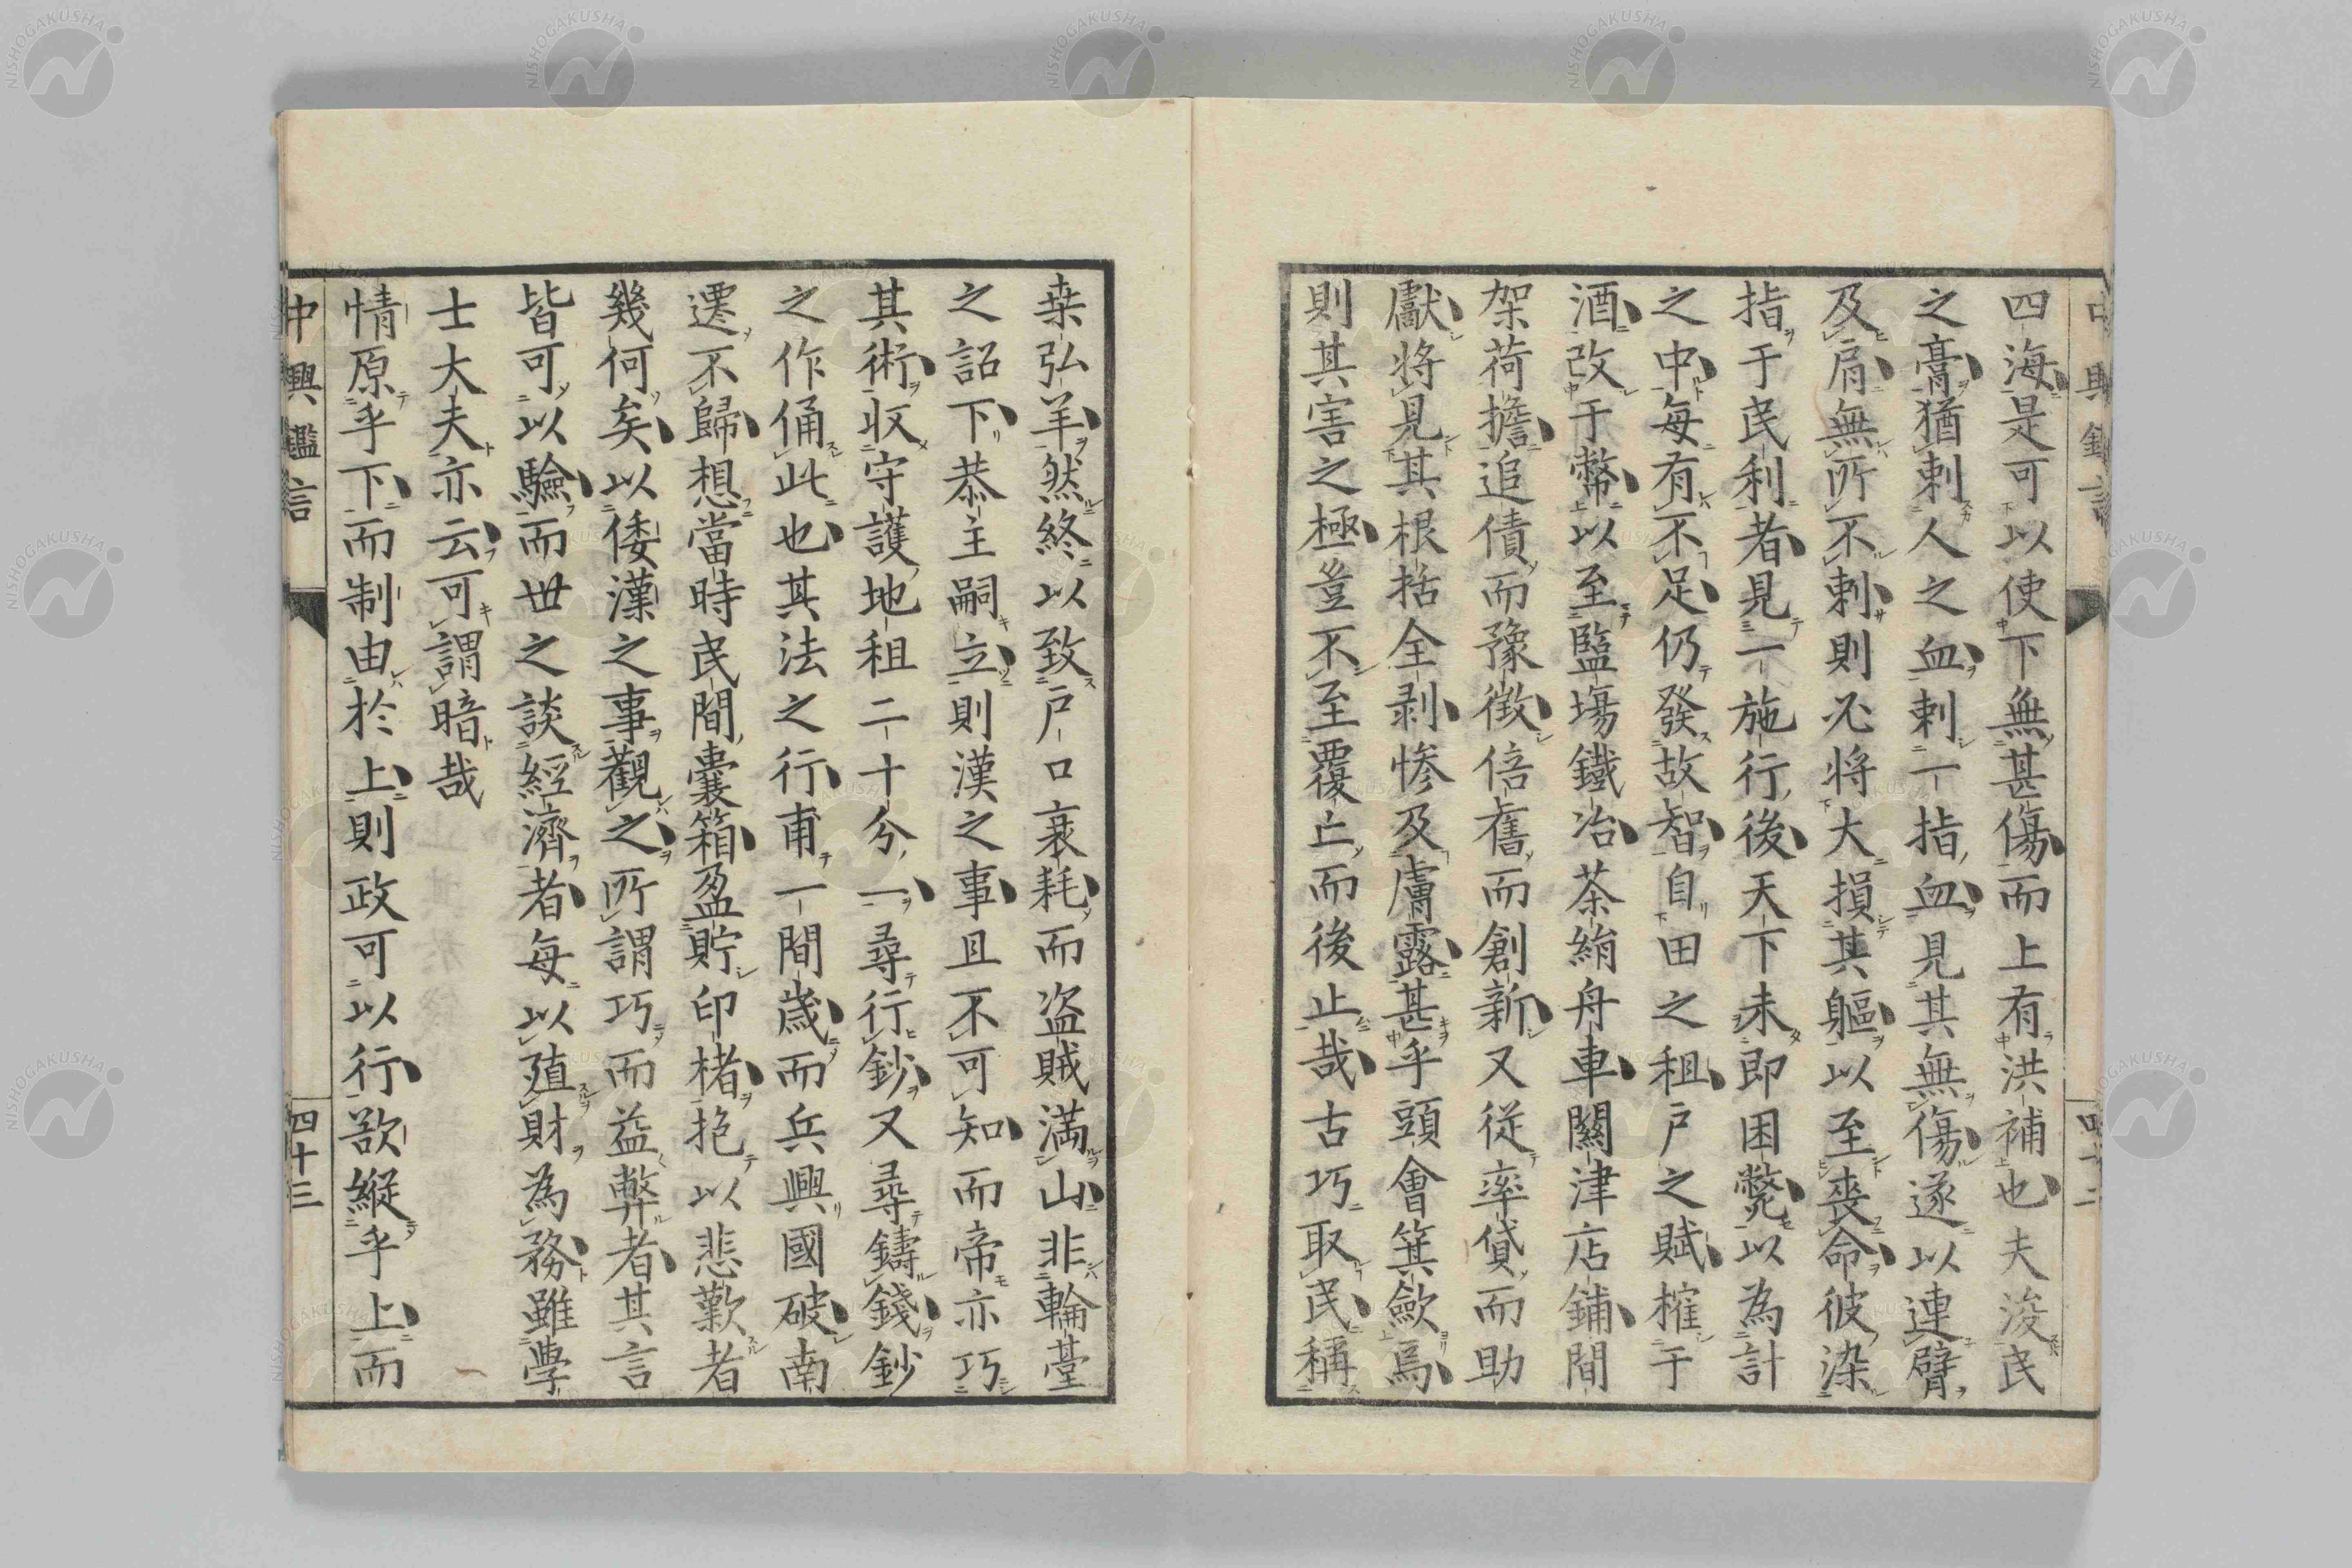 四海是可以使下無甚傷而上有洪補也夫浚民
之膏猶刺人之血刺一指血見其無傷遂以連臂
及肩無所不刺則必将大損其軀以至喪命彼染
指于民利者見一施行後天下未即困斃以為計
之中每有不足仍發故智自田之租戶之賦榷于
酒改于幣以至監塲鐵冶茶絹舟車關津店鋪間
架荷擔追債而豫徴倍舊而創新又從率貸而助
獻将見其根括全剥惨及膚露甚乎頭會箕歛焉
則其害之極豈不至覆亡而後止哉古巧取民稱
桒弘羊然終以致戸口衰耗而盗賊満山非輪臺
之詔下恭主嗣立則漢之事且不可知而帝亦巧
其術収守護地租二十分一尋行鈔又尋鑄錢鈔
之作俑此也其法之行甫一間歳而兵興國破南
遷不歸想當時民間嚢箱盈貯印楮抱以悲歎者
幾何矣以倭漢之事觀之所謂巧而益弊者其言
皆可以驗而世之談經濟者每以殖財為務雖學
士大夫亦云可謂暗哉
情原乎下而制由於上則政可以行欲縦乎上而
中興鑑言
四十三
NISHOGAKUSHA